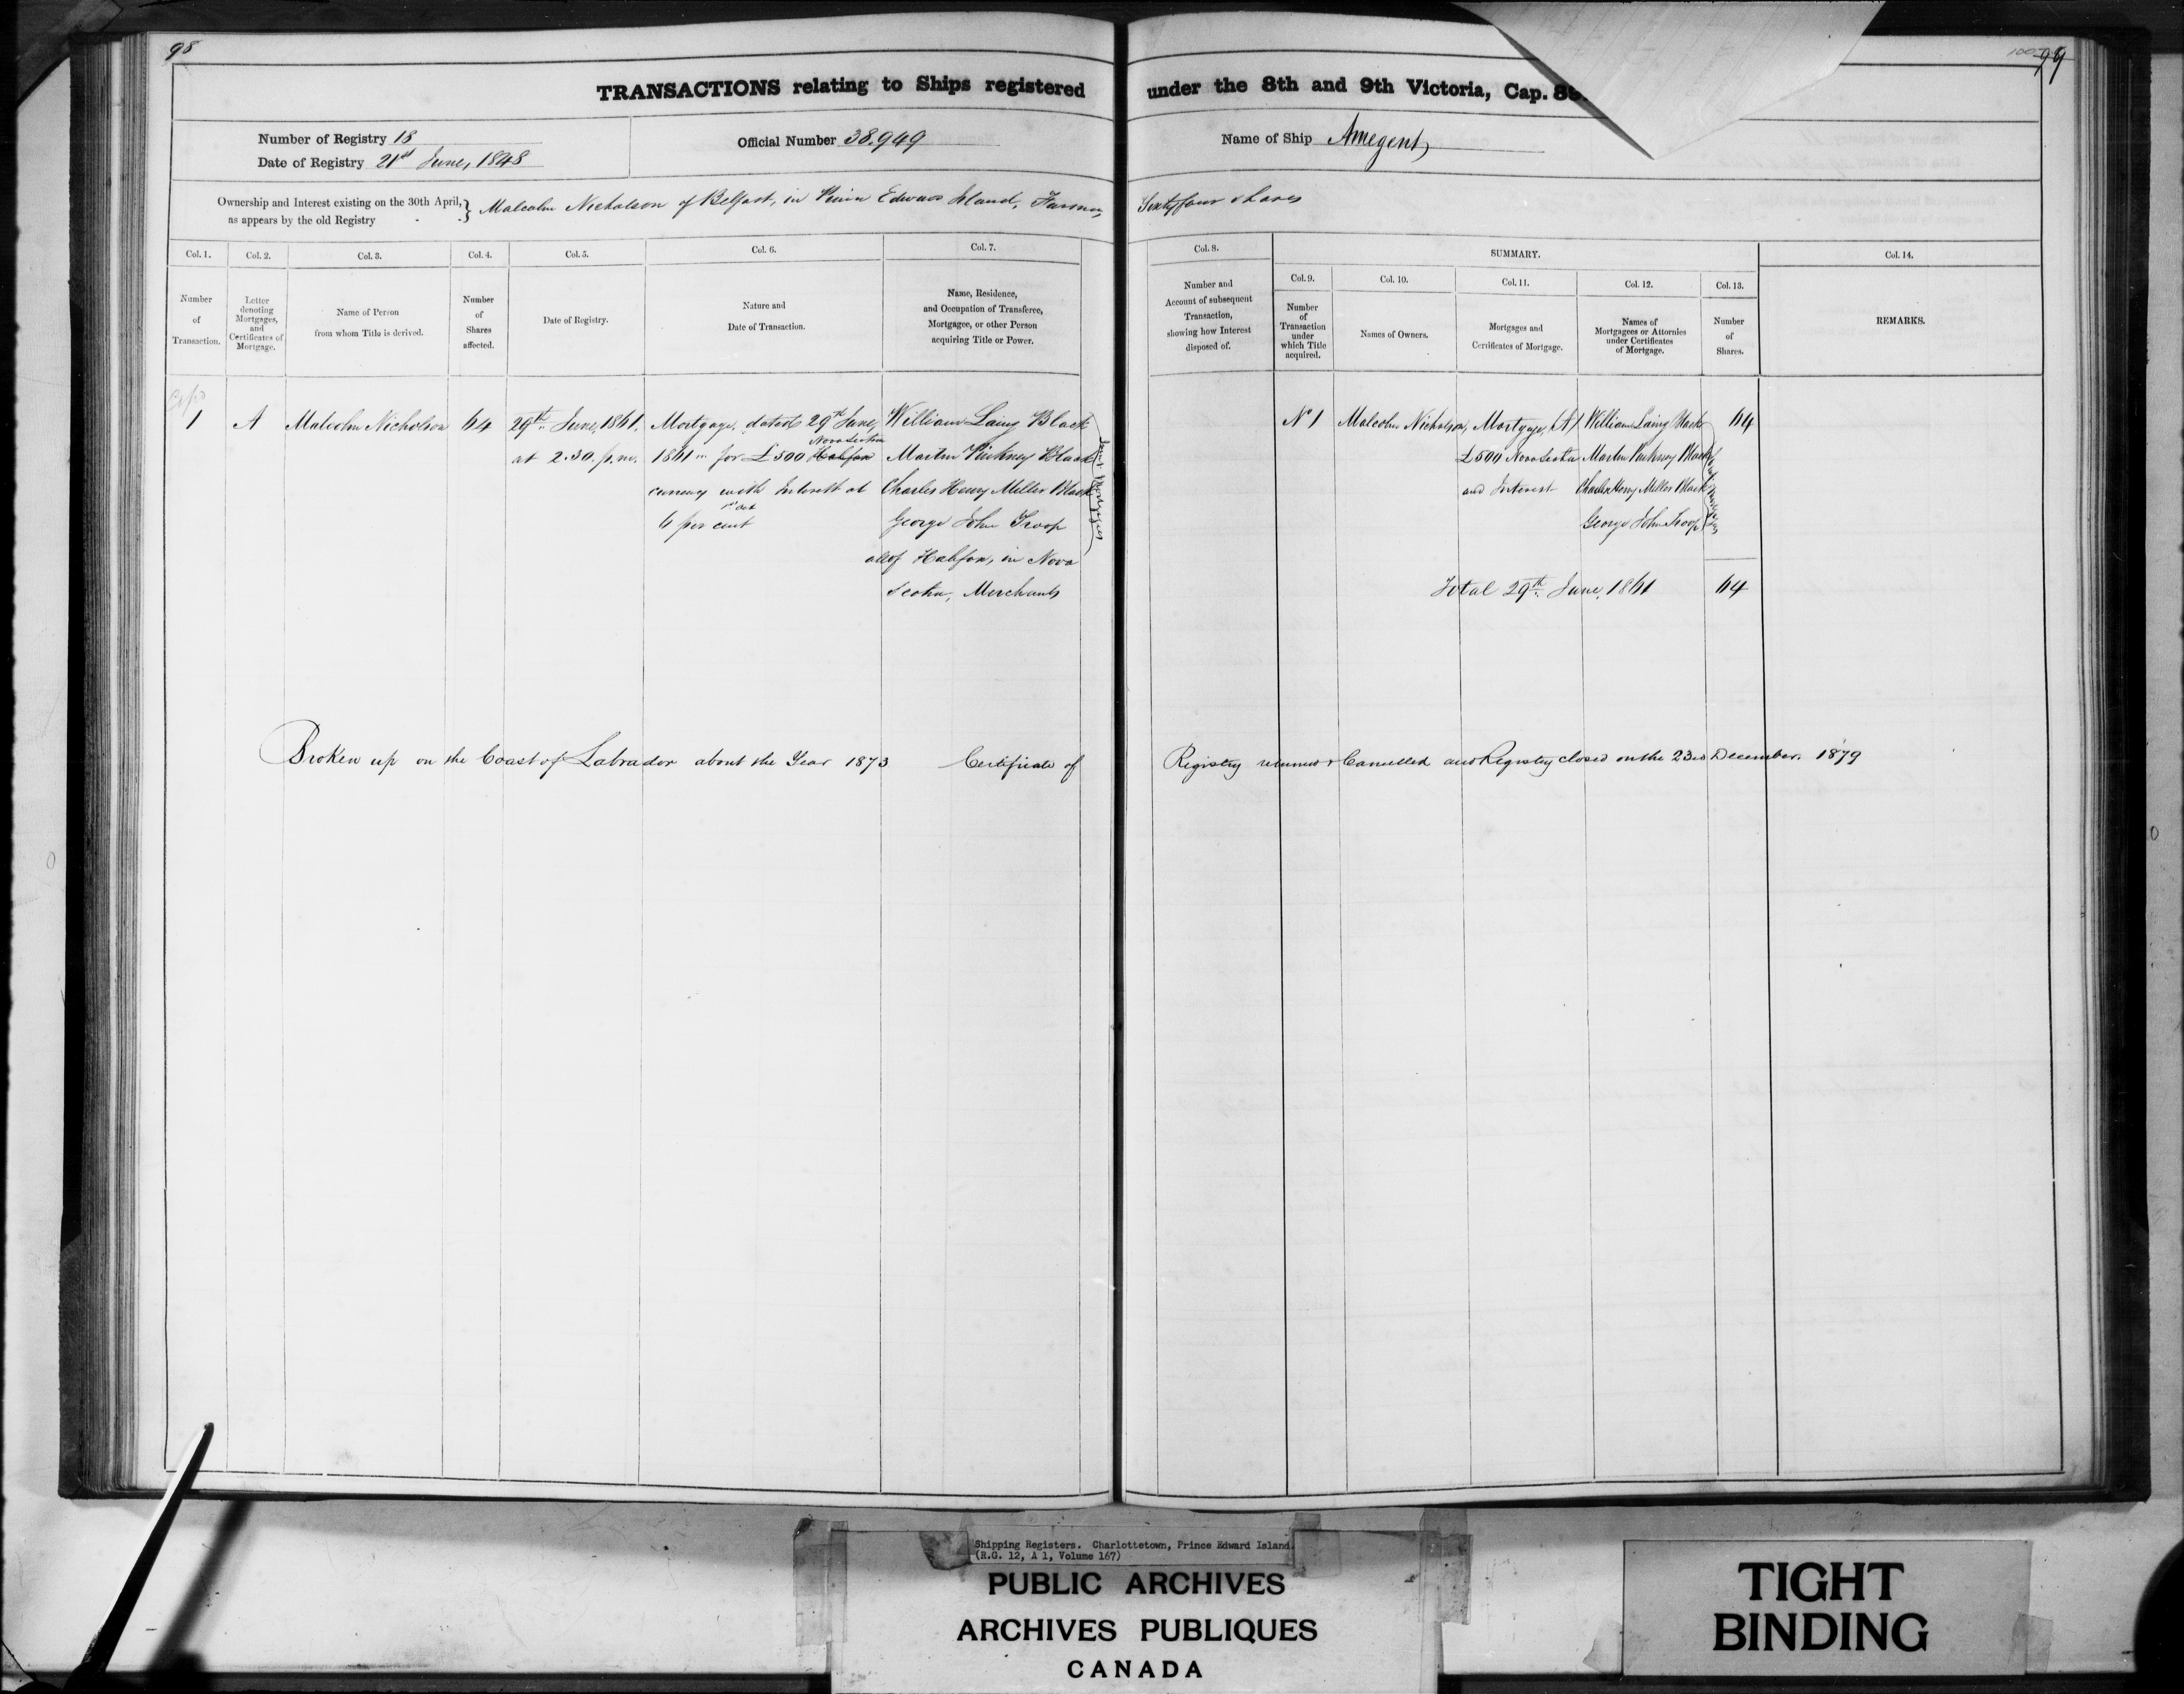 98
99
TRANSACTIONS relating to Ships registered under the 8th and 9th Victoria, Cap.
Number of Registry 18
Date of Registry 21st June, 1848
Official Number 38,949
Name of Ship Amegent,
Ownership and Interest existing on the 30th April,
as appears by the old Registry
Malcolm Nicholson of Belfast, in Edward Island, Farmer, Sixty four shares
Col. 1.
Col. 2.
Col. 3.
Col. 4.
Col. 5.
Col. 6.
Col. 7.
Col. 8.
SUMMARY.
Col. 9.
Col. 10.
Col. 11.
Col. 12.
Col. 13.
Col. 14.
Number
of
Transaction.
Letter
denoting
Mortgages,
and
Certificates of
Mortgage.
Name of Person
from whom Title is derived.
Number
of
Shares
affected.
Date of Registry.
Nature and
Date of Transaction.
Name, Residence,
and Occupation of Transferee,
Mortgagee, or other Person
acquiring Title or Power.
Number and
Account of subsequent
Transaction,
showing how Interest
disposed of.
Number
of
Transaction
under
which Title
acquired.
Names of Owners.
Mortgages and
Certificates of Mortgage.
Names of
Mortgagees or Attornies
under Certificates
of Mortgage.
Number
of
Shares.
REMARKS.
1
A
Malcolm Nicholson
64
29th June, 1861.
at 2.30. p.m.
Mortgage, dated 29th June,
Nova Scotia
1861 for £500 Halifax
currency with Interest at
6 per cent
William Laing Black
Martin Pinkney Black
Charles Henry Miller Black
George John Troop
all of Halifax, in Nova
Scotia, Merchants
Joint Mortgagees
No 1
Malcolm Nicholson,
Mortgage, (A)
£500 Nova Scotia
and Interest
William Laing Black
Martin Pinkney Black
Charles Henry Miller Black
George John Troop
Joint Mortgagees
64
Total 29th June, 1861
64
Broken up on the Coast of Labrador about the Year 1873 Certificate of Registry Cancelled and Registry closed on the 23rd December 1879
Shipping Registers. Charlottetown, Prince Edward Island.
(R.G. 12, A 1, Volume 167)
PUBLIC ARCHIVES
ARCHIVES PUBLIQUES
CANADA
TIGHT
BINDING